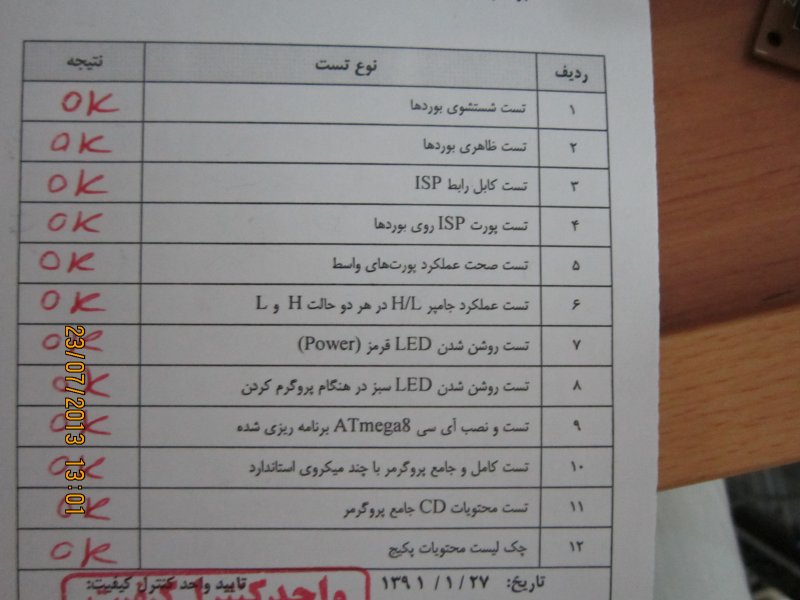 ردیف نوع تست نتیجه
۱ تست شستشوی بوردها OK
۲ تست ظاهری بوردها OK
۳ تست کابل رابط ISP OK
۴ تست پورت ISP روی بوردها OK
۵ تست صحت عملکرد پورت‌های واسط OK
۶ تست عملکرد جامپر H/L در هر دو حالت H و L OK
۷ تست روشن شدن LED قرمز (Power) OK
۸ تست روشن شدن LED سبز در هنگام پروگرم کردن OK
۹ تست و نصب آی سی ATmega8 برنامه ریزی شده OK
۱۰ تست کامل و جامع پروگرمر با چند میکروی استاندارد OK
۱۱ تست محتویات CD جامع پروگرمر OK
۱۲ چک لیست محتویات پکیج OK
تاریخ: ۱۳۹۱/۱/۲۷ تایید واحد کنترل کیفیت:
واحد کنترل کیفیت
23/07/2013 13:01